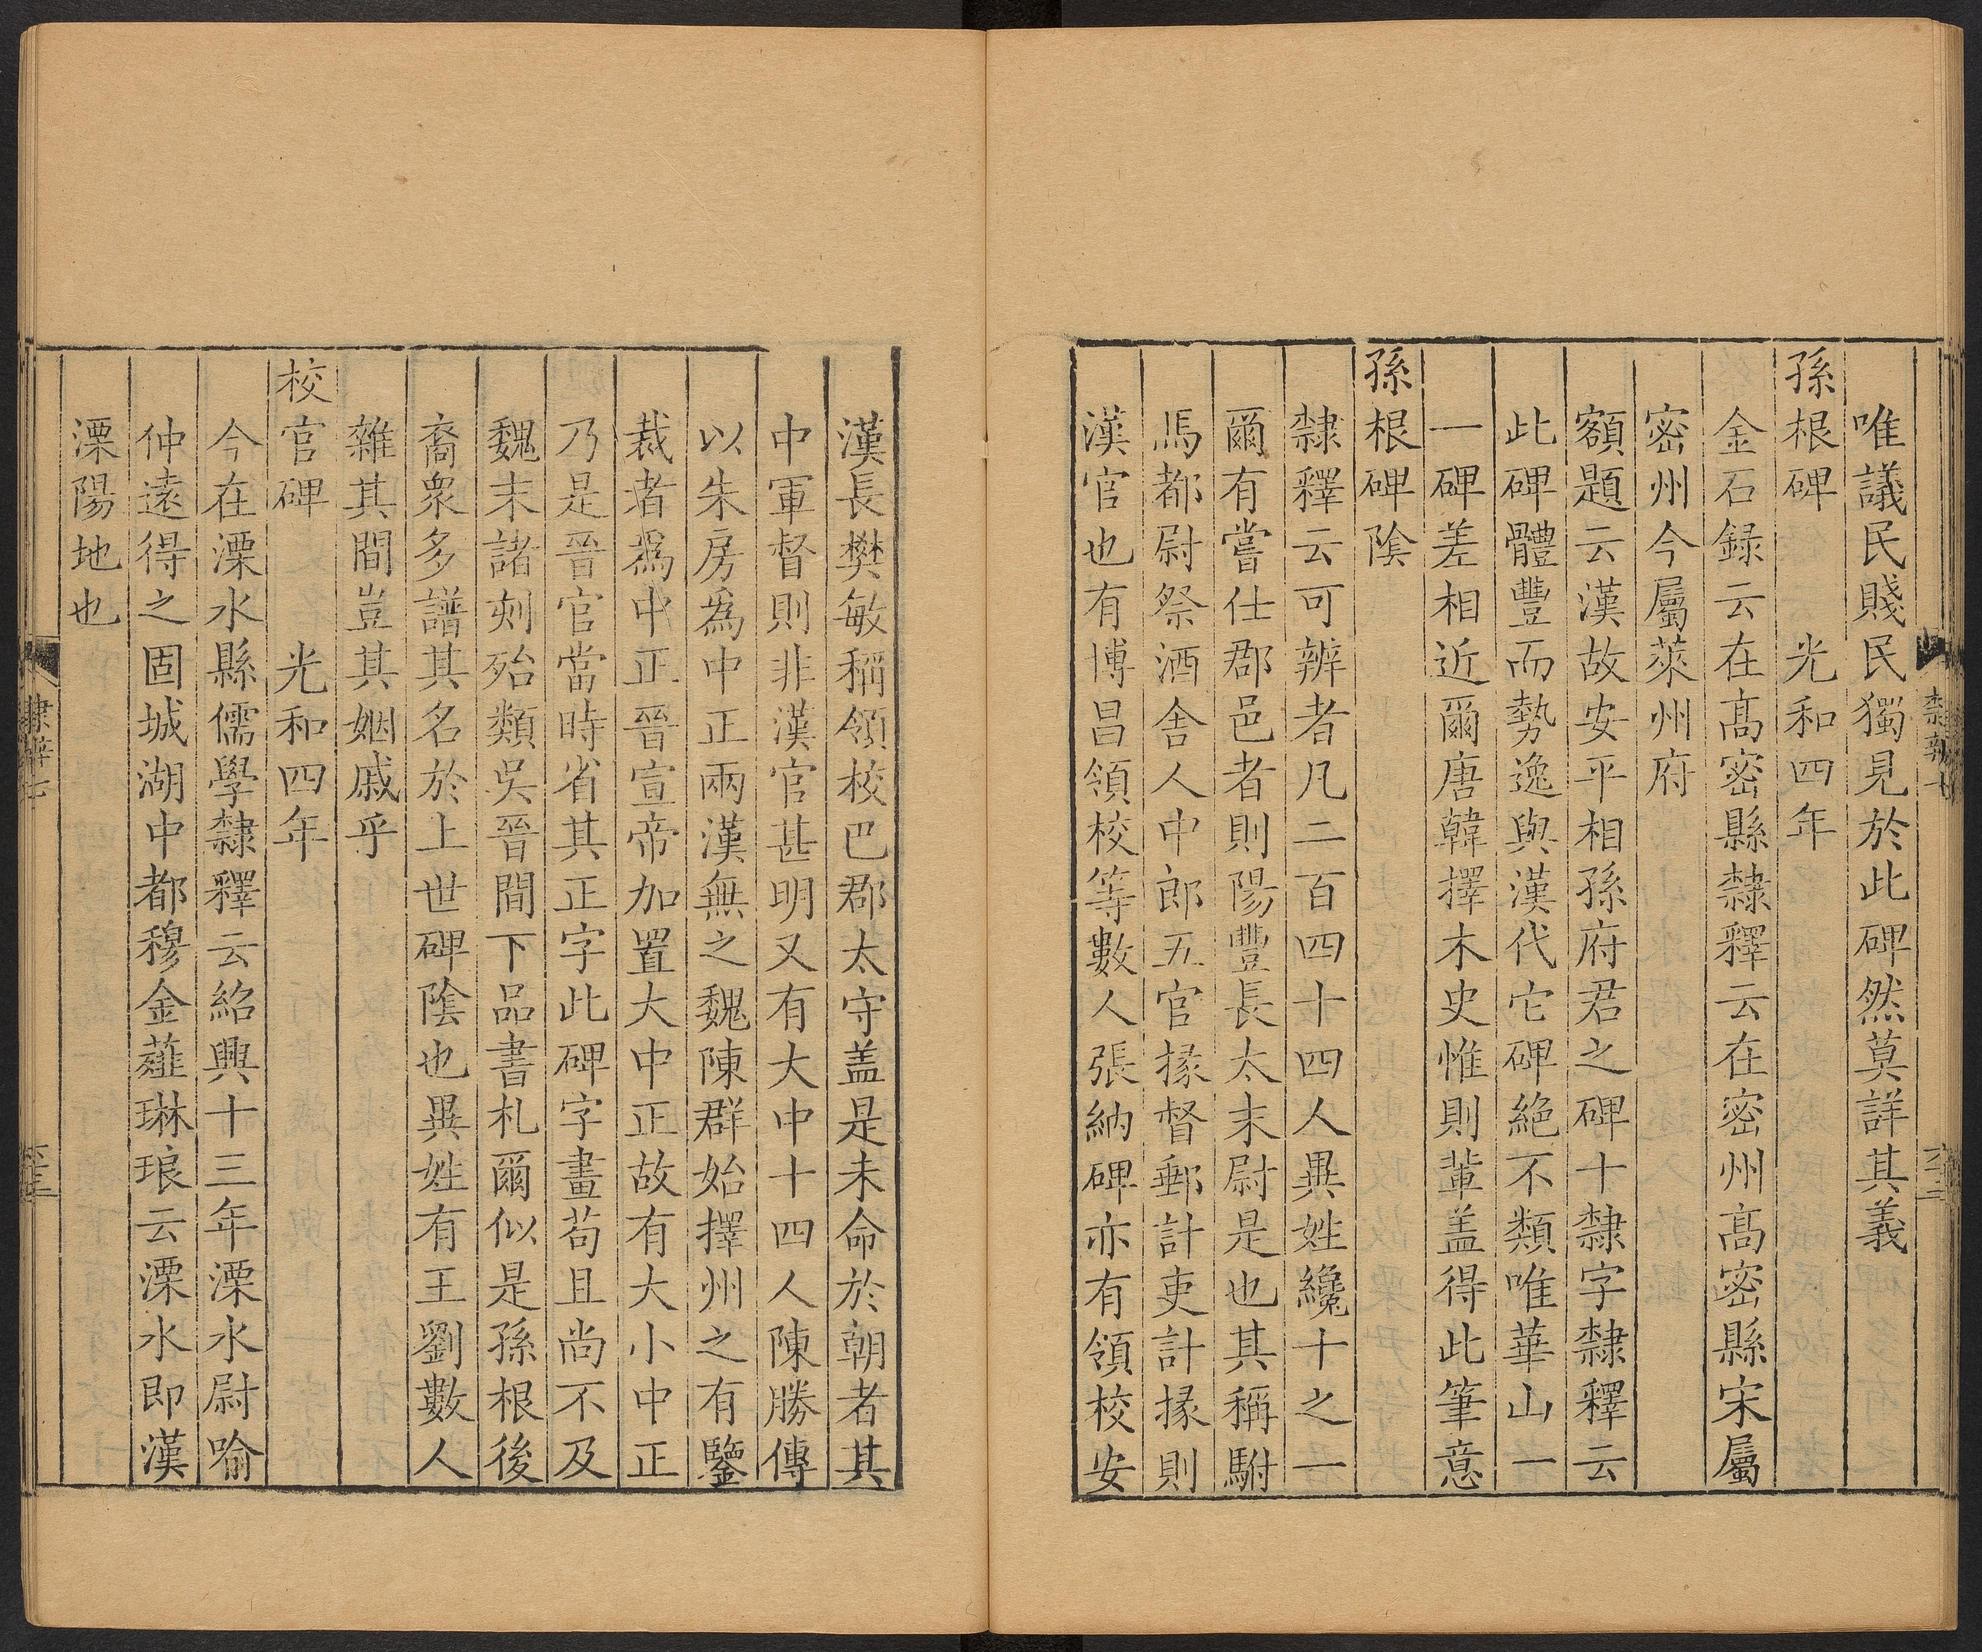 唯議民賤民獨見於此碑然莫詳其義
孫根碑　光和四年
金石録云在髙密縣隸釋云在密州髙密縣宋屬
密州今屬萊州府
額題云漢故安平相孫府君之碑十隸字隸釋云
此碑體豐而勢逸與漢代它碑絕不類唯華山一
一碑差相近爾唐韓擇木史惟則輩盖得此筆意
孫根碑陰
隸釋云可辨者凡二百四十四人異姓纔十之一
爾有嘗仕郡邑者則陽豐長太末尉是也其稱駙
馬都尉祭酒舍人中郎五官掾督郵計吏計掾則
漢官也有博昌領校等數人張納碑亦有領校安
漢長樊敏稱領校巴郡太守盖是未命於朝者其
中軍督則非漢官甚明又有大中十四人陳勝傳
以朱房為中正兩漢無之魏陳群始擇州之有鑒
裁者為中正晉宣帝加置大中正故有大小中正
乃是晉官當時省其正字此碑字畫苟且尚不及
魏末諸刻殆類吳晉間下品書札爾似是孫根後
裔衆多譜其名於上世碑陰也異姓有王劉數人
雜其間豈其姻戚乎
校官碑　光和四年
今在溧水縣儒學隸釋云紹興十三年溧水尉喻
仲遠得之固城湖中都穆金薤琳琅云溧水即漢
溧陽地也
隸辨七